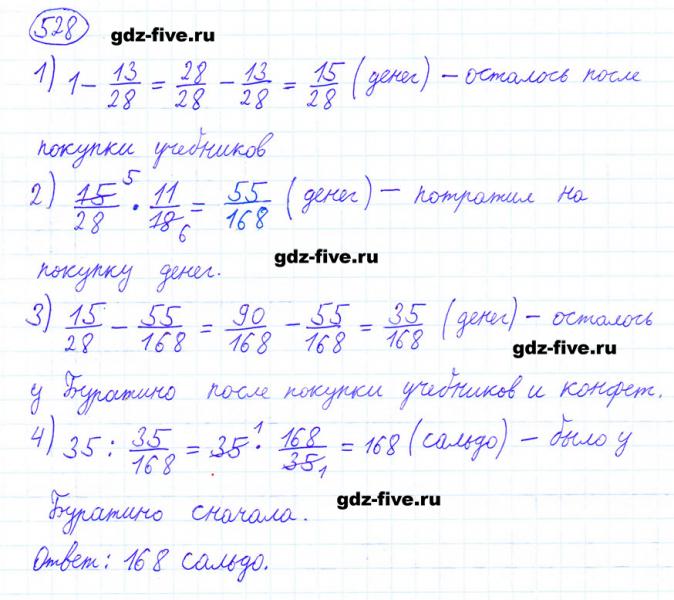 528 gdz-five.ru
1) 1 - 13/28 = 28/28 - 13/28 = 15/28 (денег) - осталось после
покупки учебников
2) 15/28 5 · 11/18 6 = 55/168 (денег) - потратил на
gdz-five.ru
покупку денег.
3) 15/28 - 55/168 = 90/168 - 55/168 = 35/168 (денег) - осталось
gdz-five.ru
у Буратино после покупки учебников и конфет.
4) 35 : 35/168 = 35 1 · 168/35 1 = 168 (сальдо) - было у
gdz-five.ru
Буратино сначала.
Ответ: 168 сальдо.